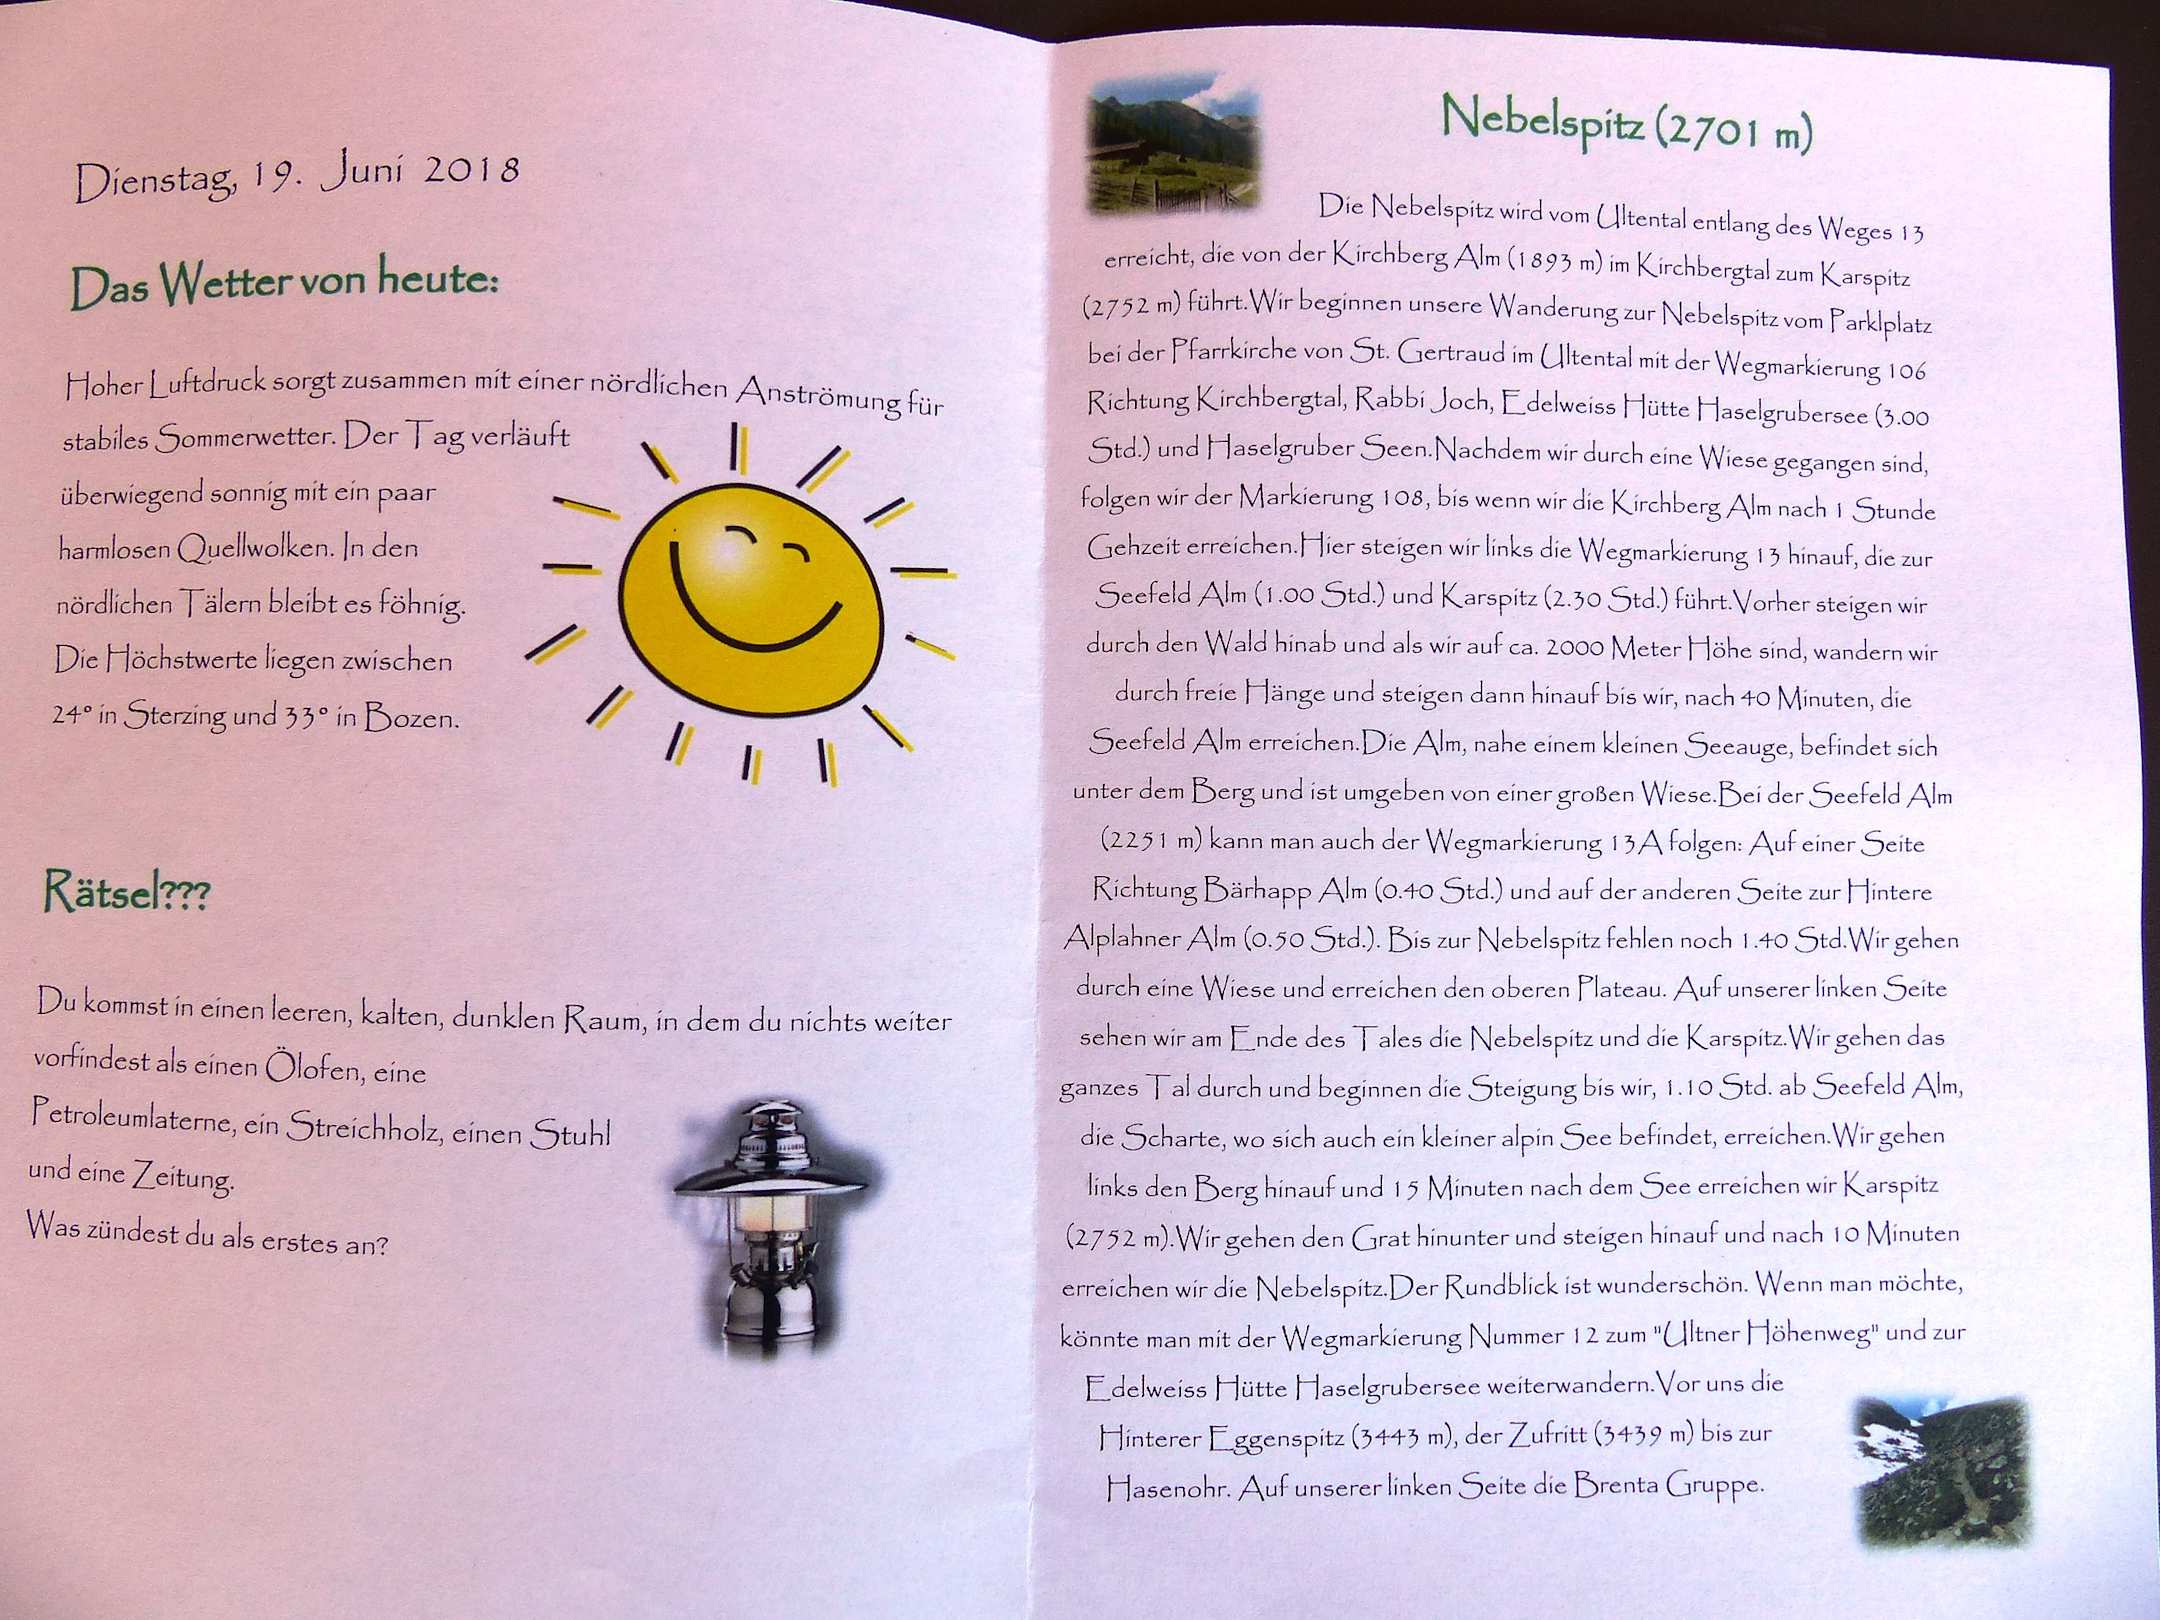 Dienstag, 19. Juni 2018
Das Wetter von heute:
Hoher Luftdruck sorgt zusammen mit einer nördlichen Anströmung für
stabiles Sommerwetter. Der Tag verläuft
überwiegend sonnig mit ein paar
harmlosen Quellwolken. In den
nördlichen Tälern bleibt es föhnig.
Die Höchstwerte liegen zwischen
24° in Sterzing und 33° in Bozen.
Rätsel???
Du kommst in einen leeren, kalten, dunklen Raum, in dem du nichts weiter
vorfindest als einen Ölofen, eine
Petroleumlaterne, ein Streichholz, einen Stuhl
und eine Zeitung.
Was zündest du als erstes an?
Nebelspitz (2701 m)
Die Nebelspitz wird vom Ultental entlang des Weges 13
erreicht, die von der Kirchberg Alm (1893 m) im Kirchbergtal zum Karspitz
(2752 m) führt.Wir beginnen unsere Wanderung zur Nebelspitz vom Parklplatz
bei der Pfarrkirche von St. Gertraud im Ultental mit der Wegmarkierung 106
Richtung Kirchbergtal, Rabbi Joch, Edelweiss Hütte Haselgrubersee (3.00
Std.) und Haselgruber Seen.Nachdem wir durch eine Wiese gegangen sind,
folgen wir der Markierung 108, bis wenn wir die Kirchberg Alm nach 1 Stunde
Gehzeit erreichen.Hier steigen wir links die Wegmarkierung 13 hinauf, die zur
Seefeld Alm (1.00 Std.) und Karspitz (2.30 Std.) führt.Vorher steigen wir
durch den Wald hinab und als wir auf ca. 2000 Meter Höhe sind, wandern wir
durch freie Hänge und steigen dann hinauf bis wir, nach 40 Minuten, die
Seefeld Alm erreichen.Die Alm, nahe einem kleinen Seeauge, befindet sich
unter dem Berg und ist umgeben von einer großen Wiese.Bei der Seefeld Alm
(2251 m) kann man auch der Wegmarkierung 13A folgen: Auf einer Seite
Richtung Bärhapp Alm (0.40 Std.) und auf der anderen Seite zur Hintere
Alplahner Alm (0.50 Std.). Bis zur Nebelspitz fehlen noch 1.40 Std.Wir gehen
durch eine Wiese und erreichen den oberen Plateau. Auf unserer linken Seite
sehen wir am Ende des Tales die Nebelspitz und die Karspitz.Wir gehen das
ganzes Tal durch und beginnen die Steigung bis wir, 1.10 Std. ab Seefeld Alm,
die Scharte, wo sich auch ein kleiner alpin See befindet, erreichen.Wir gehen
links den Berg hinauf und 15 Minuten nach dem See erreichen wir Karspitz
(2752 m).Wir gehen den Grat hinunter und steigen hinauf und nach 10 Minuten
erreichen wir die Nebelspitz.Der Rundblick ist wunderschön. Wenn man möchte,
könnte man mit der Wegmarkierung Nummer 12 zum "Ultner Höhenweg" und zur
Edelweiss Hütte Haselgrubersee weiterwandern.Vor uns die
Hinterer Eggenspitz (3443 m), der Zufritt (3439 m) bis zur
Hasenohr. Auf unserer linken Seite die Brenta Gruppe.